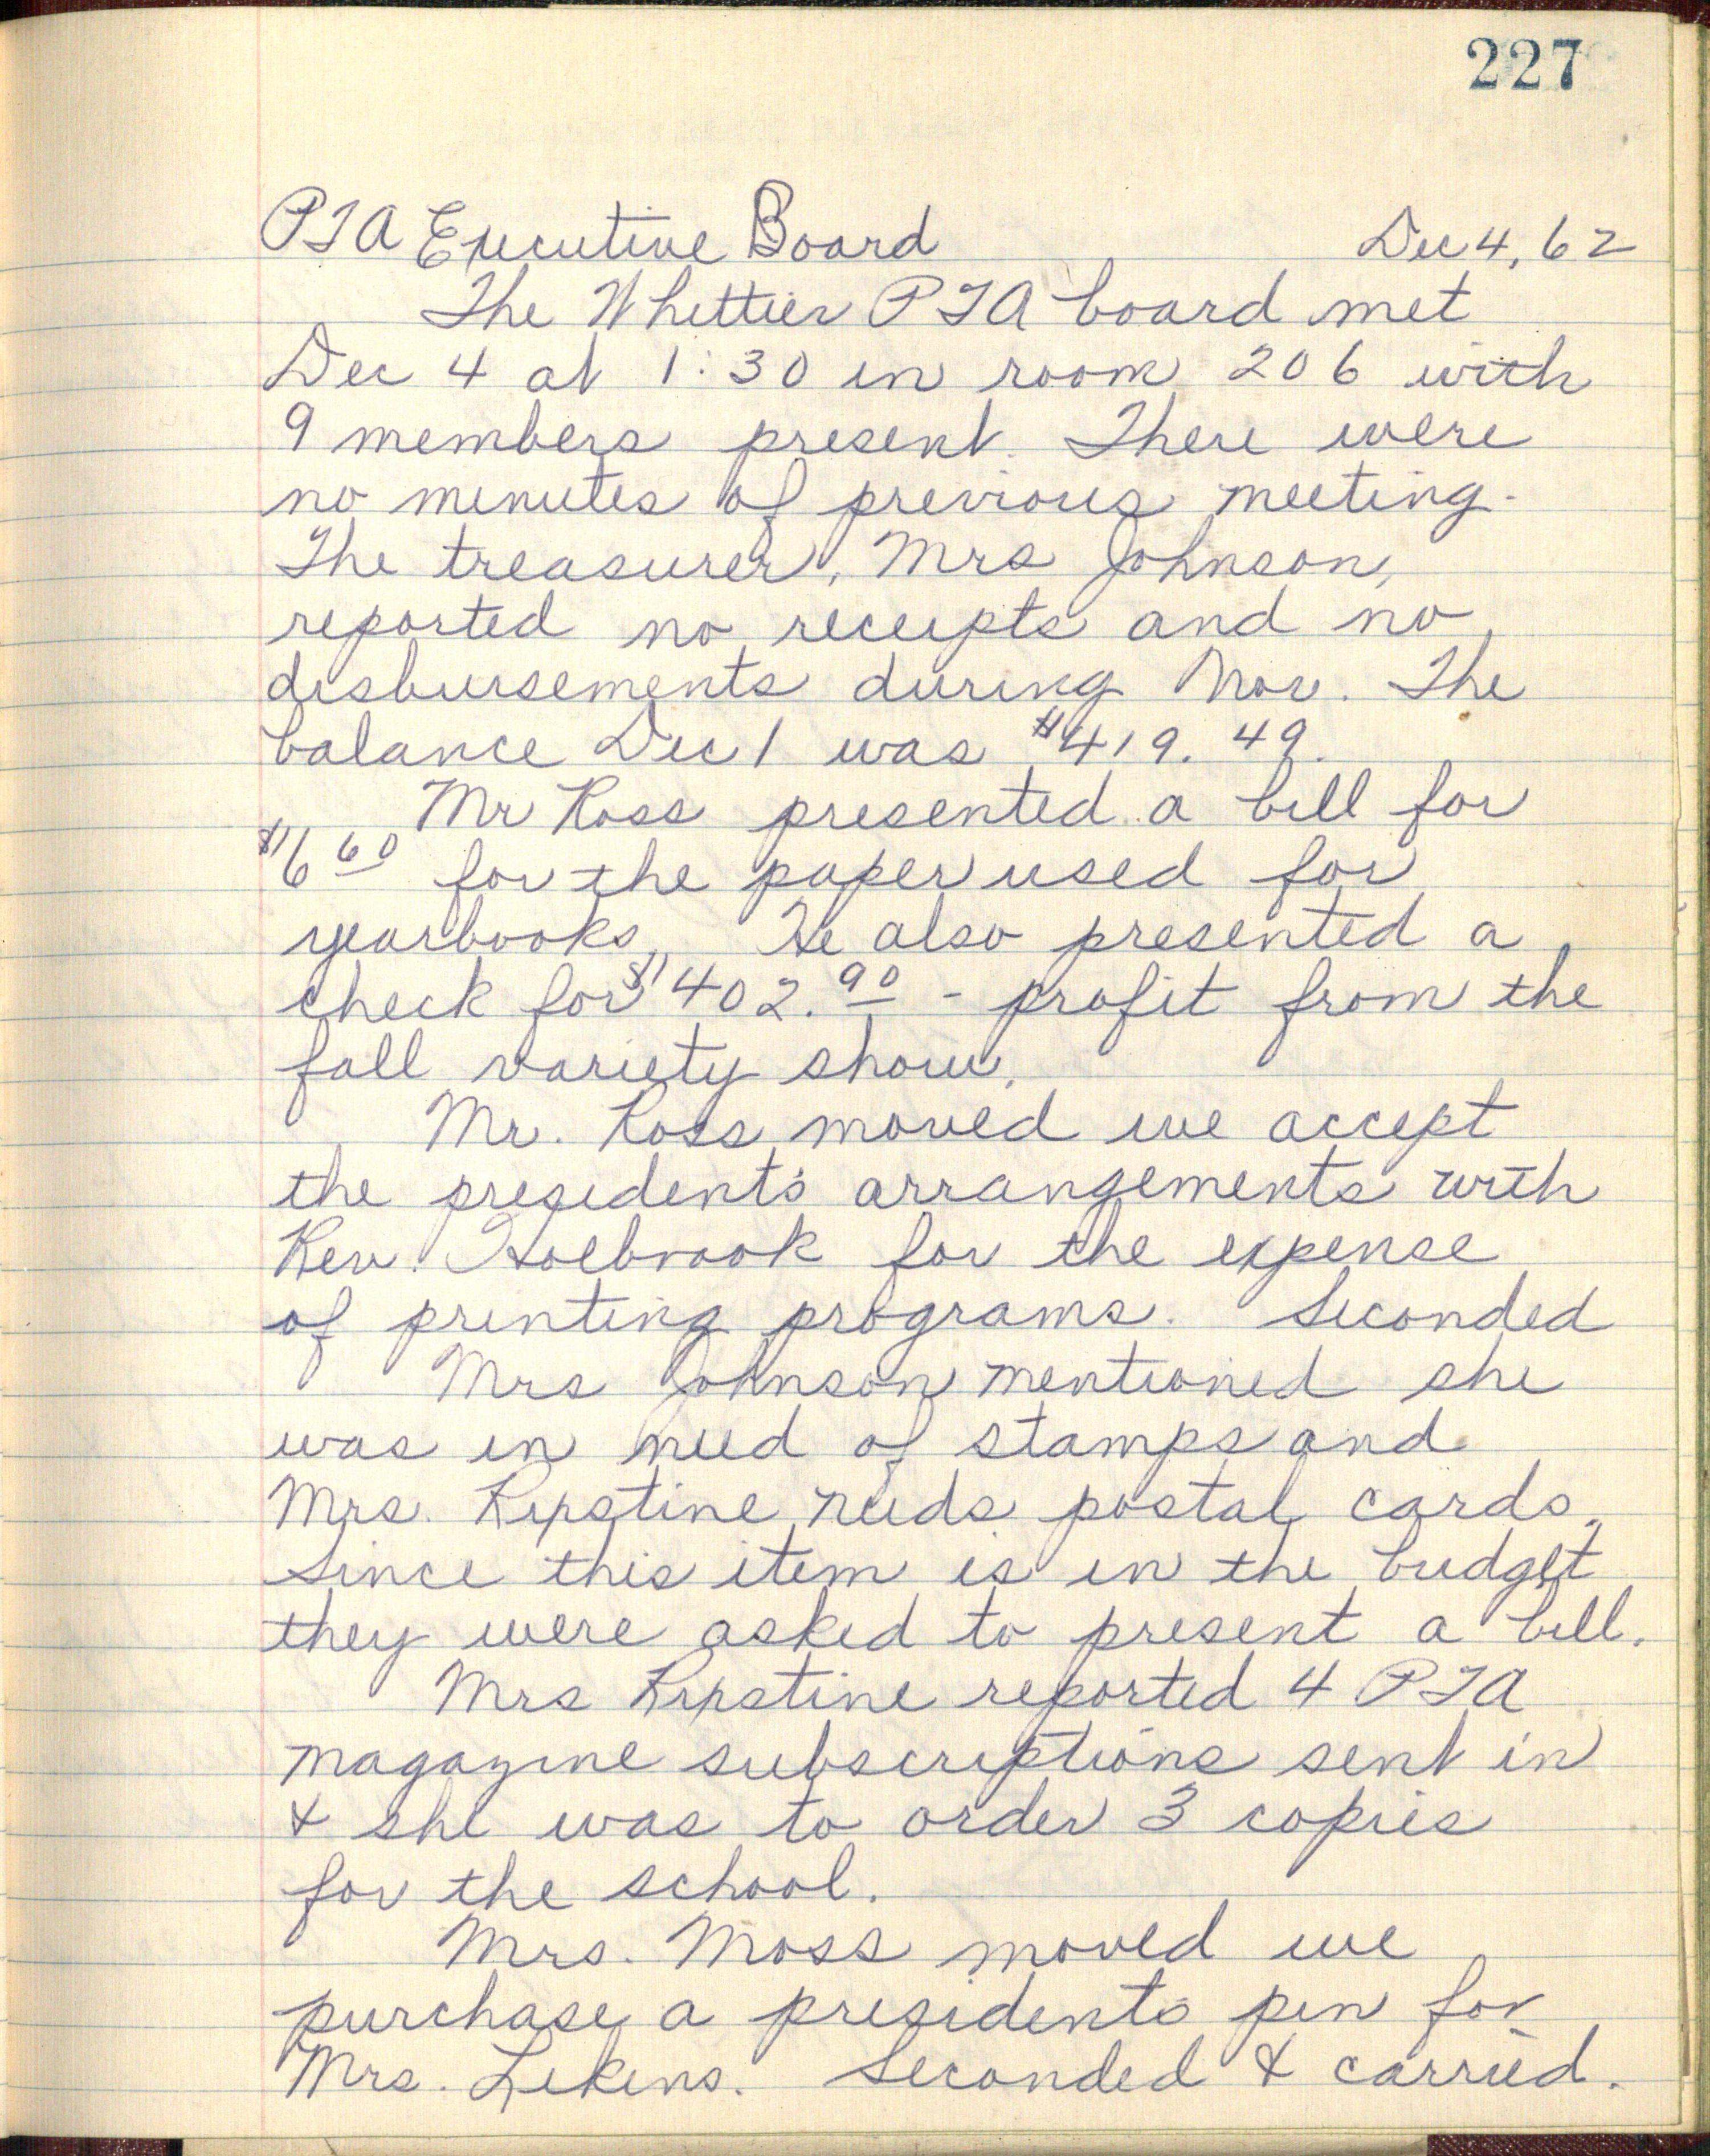 227
PTA Executive Board Dec 4, 62
The Whittier PTA board met
Dec 4 at 1:30 in room 206 with
9 members present. There were
no minutes of previous meeting.
The treasurer, Mrs Johnson,
reported no receipts and no
disbursements during Nov. The
balance Dec 1 was $419.49.
Mr Ross presented a bill for
$6 60 for the paper used for
yearbooks. He also presented a
check for $402.90 - profit from the
fall variety show.
Mr. Ross moved we accept
the president's arrangements with
Rev. Holbrook for the expense
of printing programs. Seconded
Mrs Johnson mentioned she
was in need of stamps and
Mrs. Ripstine needs postal cards.
Since this item is in the budget
they were asked to present a bill.
Mrs Ripstine reported 4 PTA
magazine subscriptions sent in
& she was to order 3 copies
for the school.
Mrs. Moss moved we
purchase a presidents pin for
Mrs. Likens. Seconded & carried.